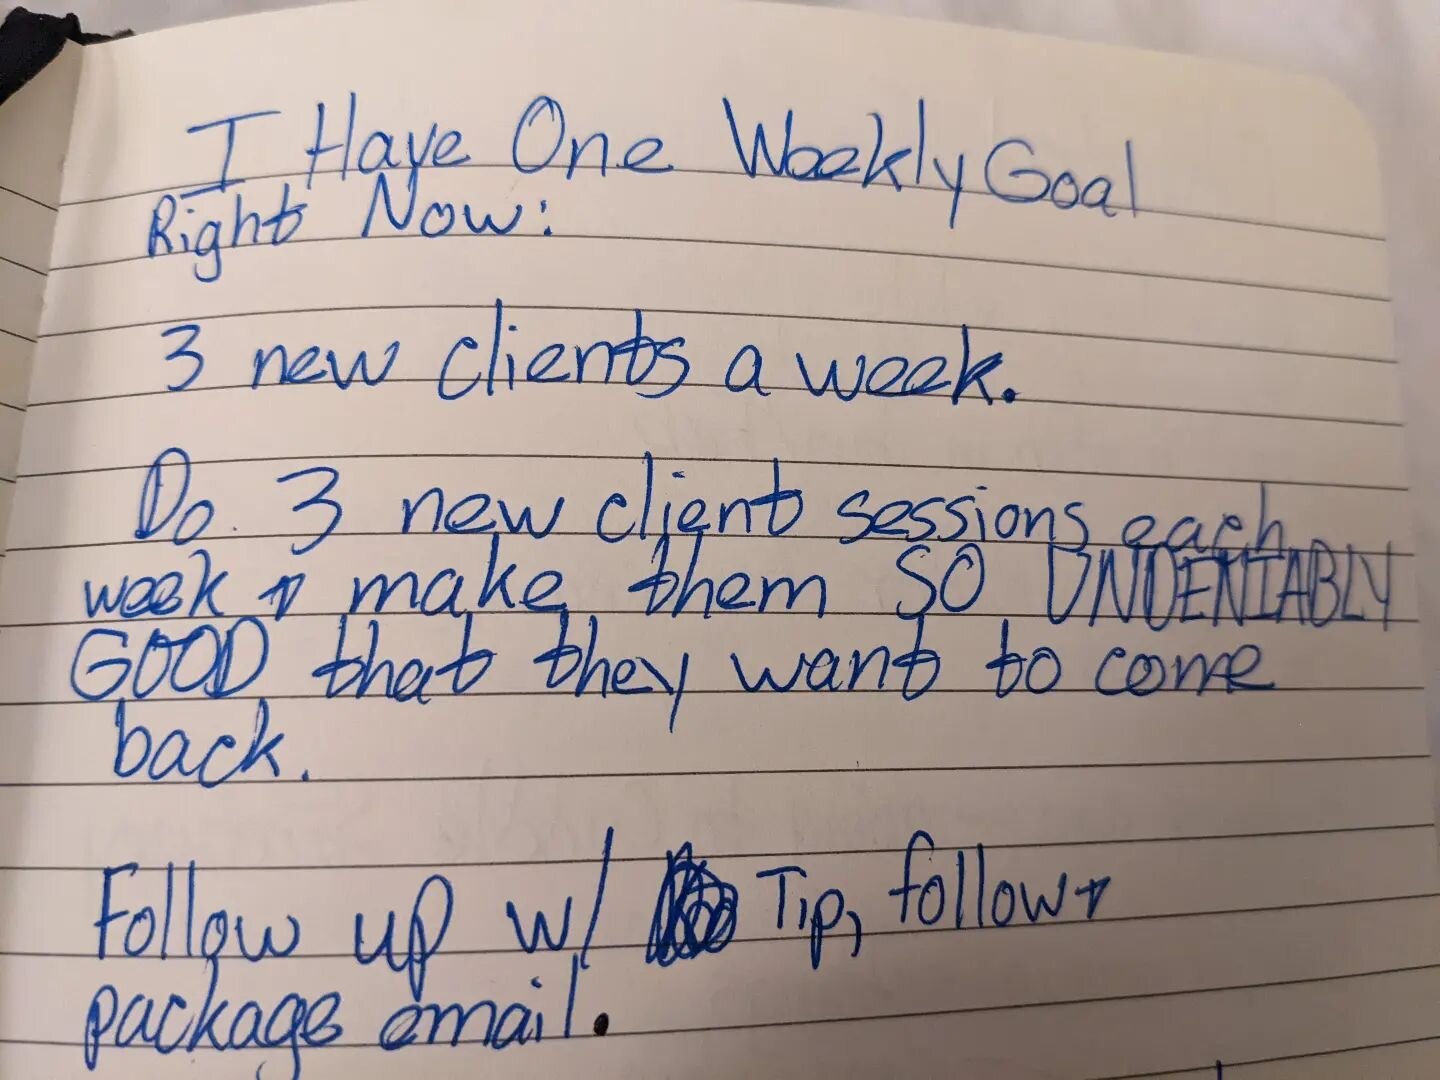 I Have One Weekly Goal
Right Now:
3 new clients a week.
Do 3 new client sessions each
week + make them SO UNDENIABLY
GOOD that they want to come
back.
Follow up w/ Tip, follow +
package email.